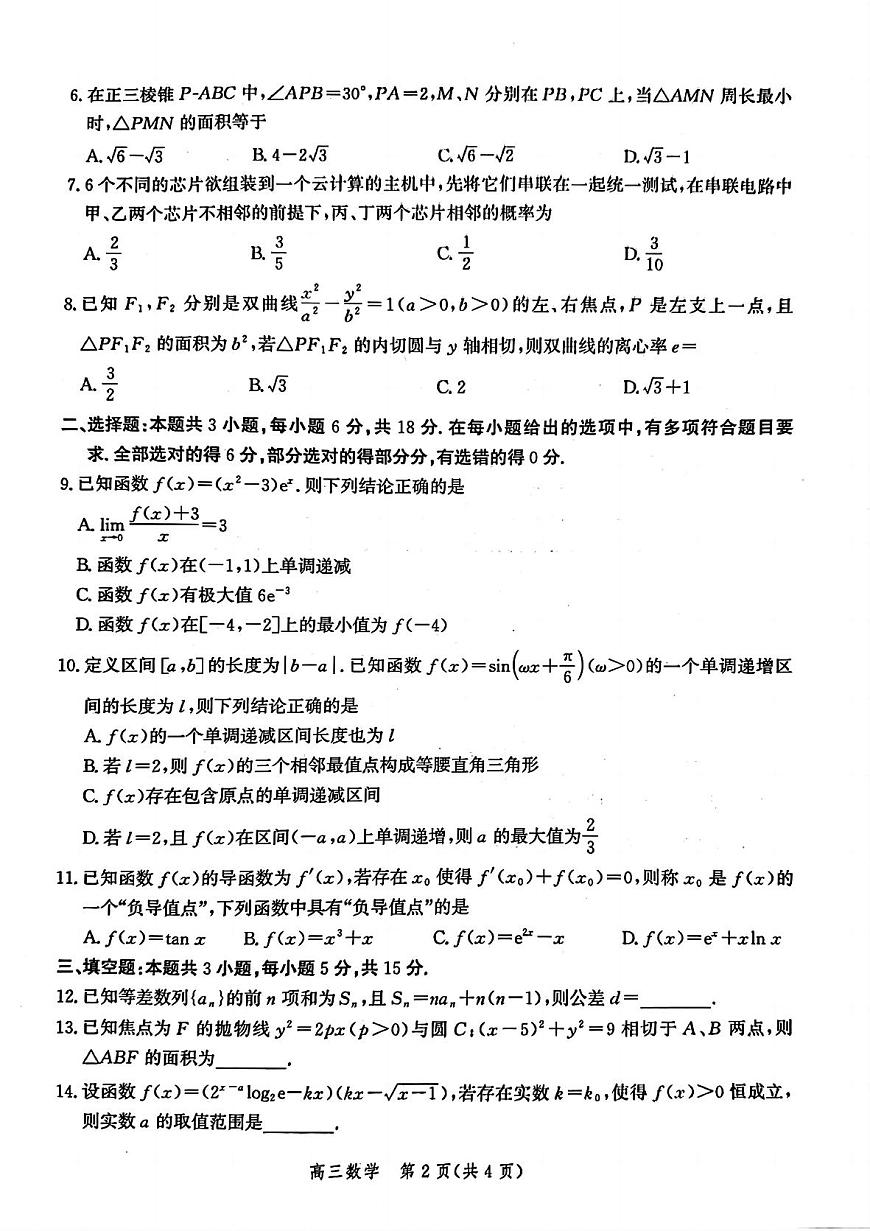 6. 在正三棱锥 P-ABC 中,∠APB=30°,PA=2,M、N 分别在 PB,PC 上,当△AMN 周长最小
时,△PMN 的面积等于
A. √6-√3 B. 4-2√3 C. √6-√2 D. √3-1
7. 6 个不同的芯片欲组装到一个云计算的主机中,先将它们串联在一起统一测试,在串联电路中
甲、乙两个芯片不相邻的前提下,丙、丁两个芯片相邻的概率为
A. 2/3 B. 3/5 C. 1/2 D. 3/10
8. 已知 F₁,F₂ 分别是双曲线 x²/a² - y²/b² =1(a>0,b>0)的左、右焦点,P 是左支上一点,且
△PF₁F₂ 的面积为 b²,若△PF₁F₂ 的内切圆与 y 轴相切,则双曲线的离心率 e=
A. 3/2 B. √3 C. 2 D. √3+1
二、选择题:本题共 3 小题,每小题 6 分,共 18 分. 在每小题给出的选项中,有多项符合题目要
求. 全部选对的得 6 分,部分选对的得部分分,有选错的得 0 分.
9. 已知函数 f(x)=(x²-3)eˣ. 则下列结论正确的是
A. lim x→0 (f(x)+3)/x =3
B. 函数 f(x)在(-1,1)上单调递减
C. 函数 f(x)有极大值 6e⁻³
D. 函数 f(x)在[-4,-2]上的最小值为 f(-4)
10. 定义区间[a,b]的长度为|b-a|. 已知函数 f(x)=sin(ωx+π/6)(ω>0)的一个单调递增区
间的长度为 l,则下列结论正确的是
A. f(x)的一个单调递减区间长度也为 l
B. 若 l=2,则 f(x)的三个相邻最值点构成等腰直角三角形
C. f(x)存在包含原点的单调递减区间
D. 若 l=2,且 f(x)在区间(-a,a)上单调递增,则 a 的最大值为 2/3
11. 已知函数 f(x)的导函数为 f′(x),若存在 x₀ 使得 f′(x₀)+f(x₀)=0,则称 x₀ 是 f(x)的
一个“负导值点”,下列函数中具有“负导值点”的是
A. f(x)=tan x B. f(x)=x³+x C. f(x)=e²ˣ-x D. f(x)=eˣ+xln x
三、填空题:本题共 3 小题,每小题 5 分,共 15 分.
12. 已知等差数列{aₙ}的前 n 项和为 Sₙ,且 Sₙ=naₙ+n(n-1),则公差 d=______.
13. 已知焦点为 F 的抛物线 y²=2px(p>0)与圆 C:(x-5)²+y²=9 相切于 A、B 两点,则
△ABF 的面积为______.
14. 设函数 f(x)=(2ˣ⁻ᵃlog₂e-kx)(kx-√(x-1)),若存在实数 k=k₀,使得 f(x)>0 恒成立,
则实数 a 的取值范围是______.
高三数学 第 2 页(共 4 页)